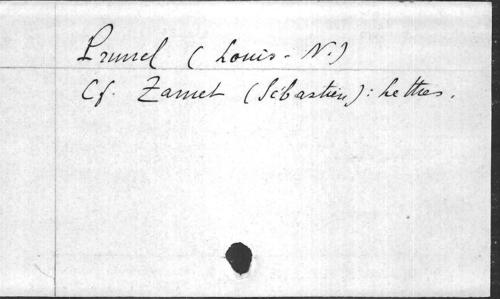 Prunel (Louis-N.)
Cf. Zamet (Sébastien): Lettres.